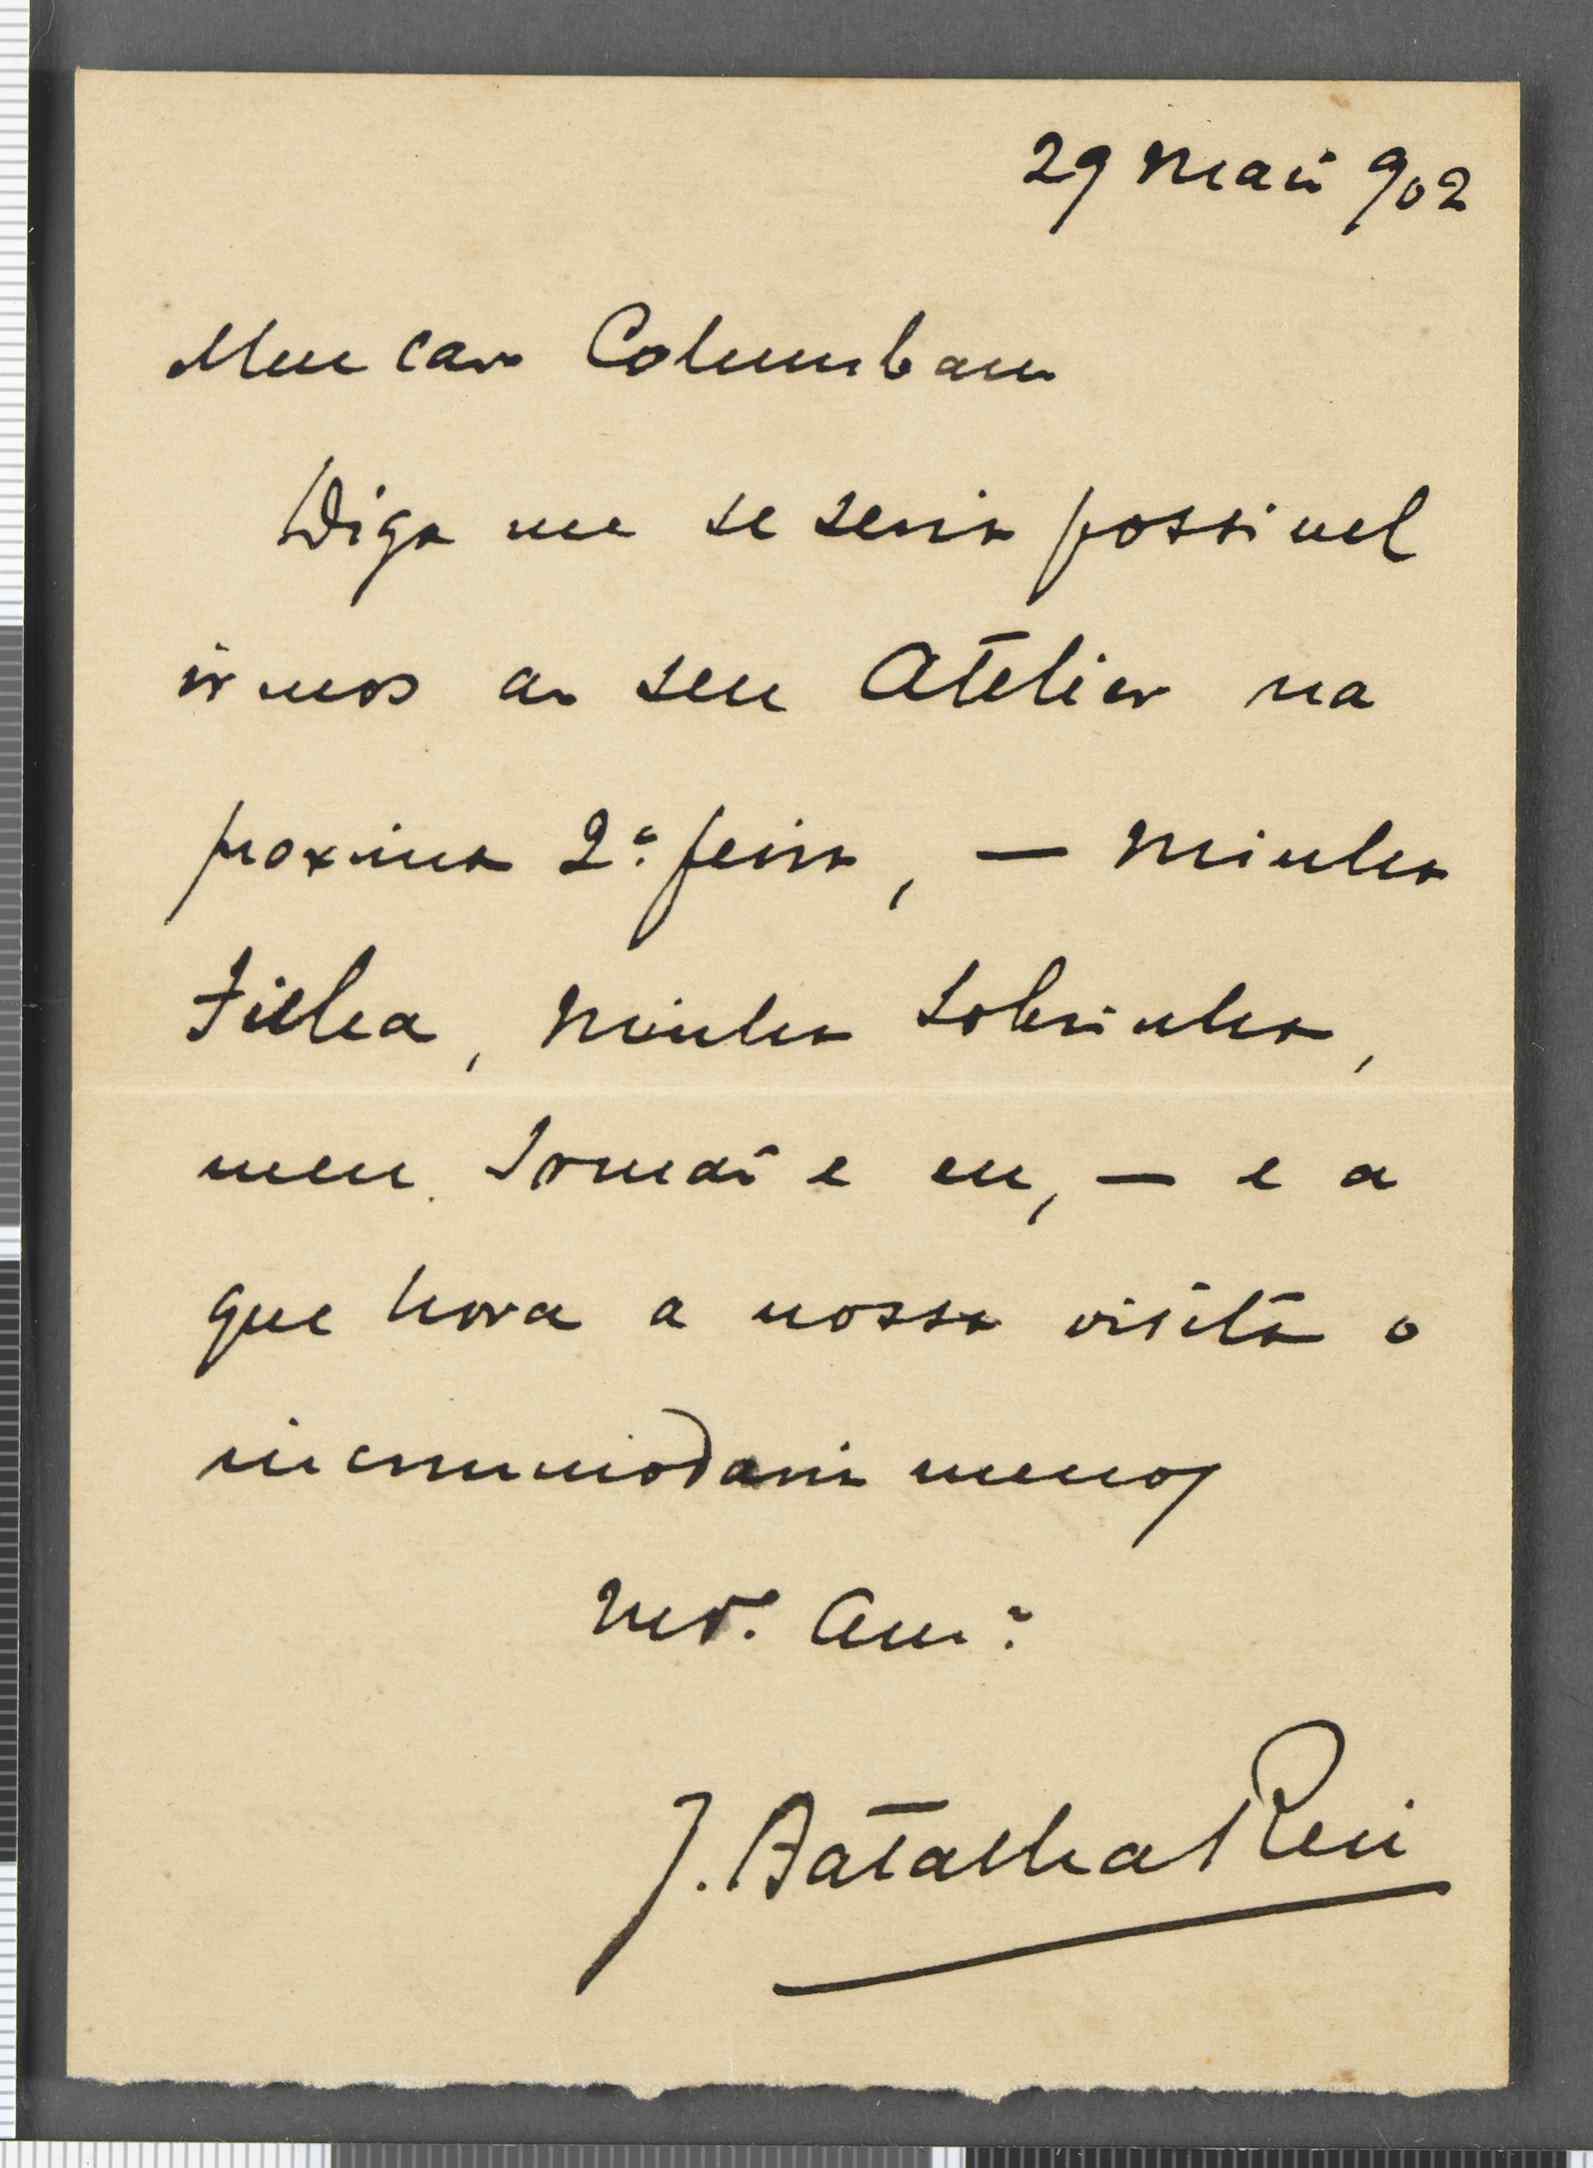 29 Maio 902
Meu caro Columbano
Diga me se seria possivel
irmos ao seu Atelier na
proxima 2ª feira, — minha
Filha, minha sobrinha,
meu Irmão e eu, — e a
que hora a nossa visita o
incommodaria menos
Mto. Amº
J. Batalha Reis